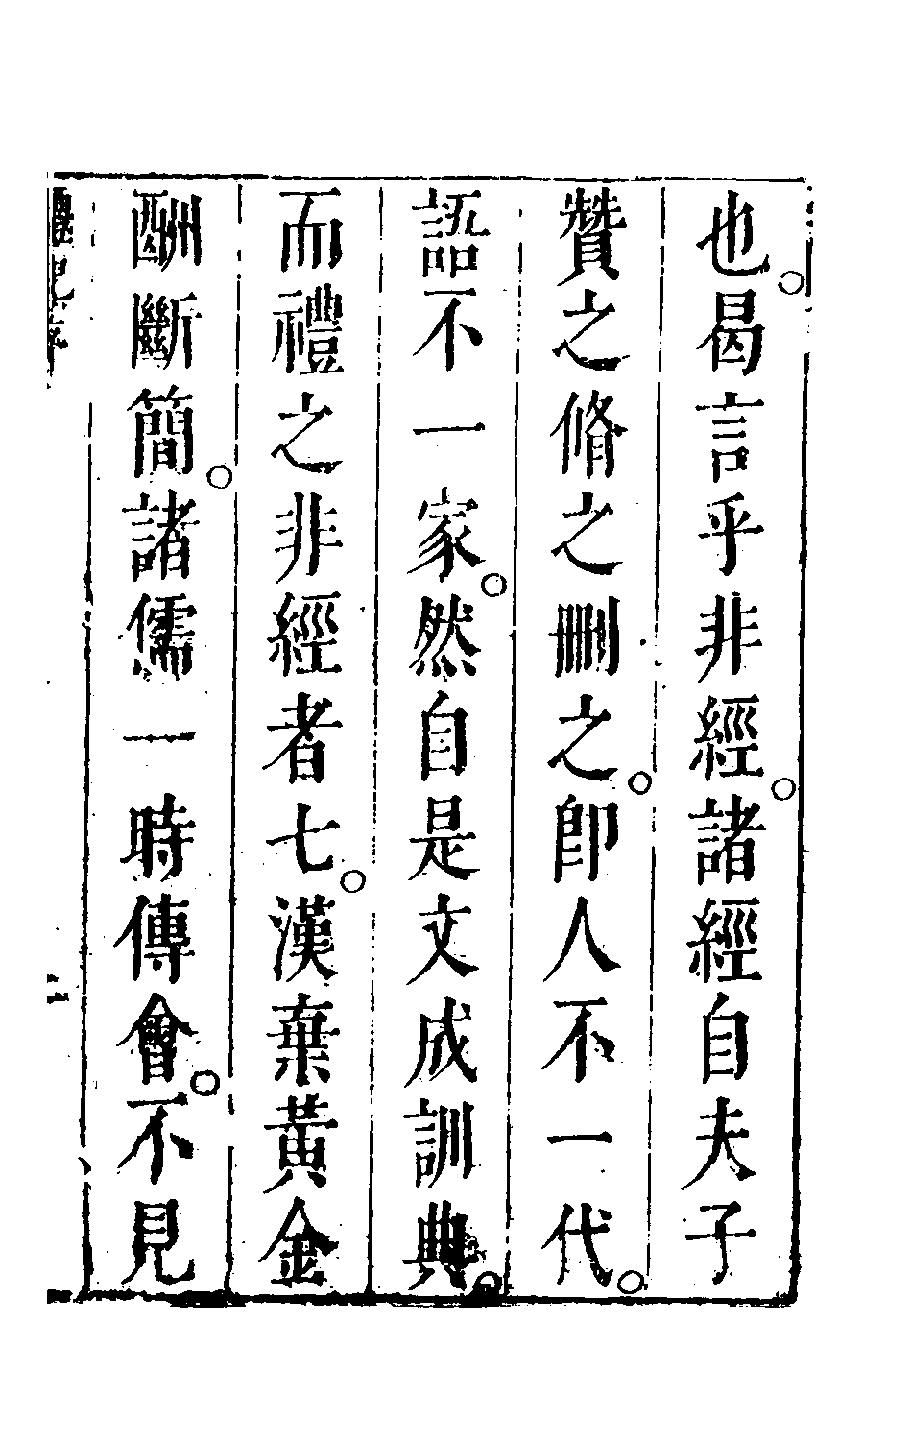 也曷言乎非經諸經自夫子
贊之脩之刪之卽人不一代
語不一家然自是文成訓典
而禮之非經者七漢棄黃金
酬斷簡諸儒一時傳會不見